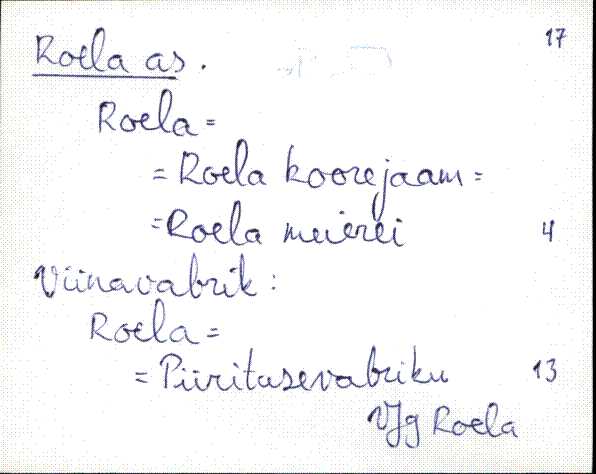 17
Roela as.
Roela =
= Roela koorejaam =
= Roela meierei 4
Viinavabrik:
Roela =
= Piiritusevabriku 13
VJg Roela